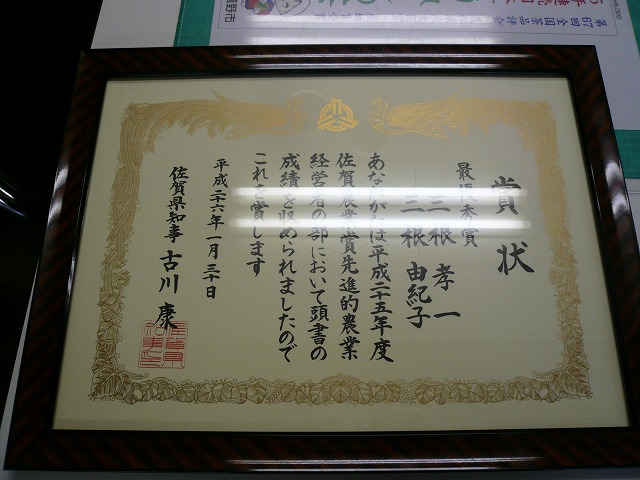 賞状
最優秀賞
三根 孝一
三根 由紀子
あなたがたは平成二十五年度
佐賀農業賞先進的農業
経営者の部において頭書の
成績を収められましたので
これを賞します
平成二十六年一月三十日
佐賀県知事 古川 康
第67回全国茶品評会